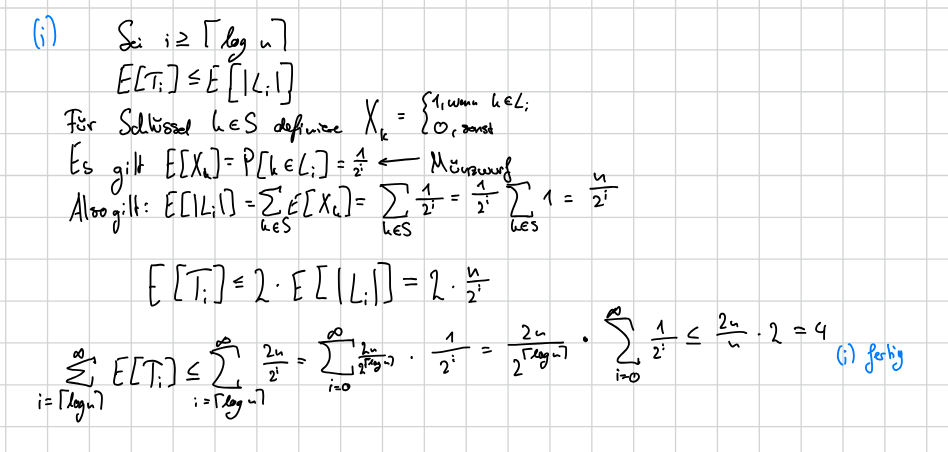 (i) Sei i ≥ ⌈log n⌉
E[Tᵢ] ≤ E[|Lᵢ|]
Für Schlüssel k∈S definiere Xₖ = {1, wenn k∈Lᵢ; 0, sonst
Es gilt E[Xₖ] = P[k∈Lᵢ] = 1/2ⁱ ← Münzwurf
Also gilt: E[|Lᵢ|] = ∑_{k∈S} E[Xₖ] = ∑_{k∈S} 1/2ⁱ = 1/2ⁱ ∑_{k∈S} 1 = n/2ⁱ
E[Tᵢ] ≤ 2 · E[|Lᵢ|] = 2 · n/2ⁱ
∑_{i=⌈log n⌉}^∞ E[Tᵢ] ≤ ∑_{i=⌈log n⌉}^∞ 2n/2ⁱ = ∑_{i=0}^∞ 2n/2^{⌈log n⌉} · 1/2ⁱ = 2n/2^{⌈log n⌉} · ∑_{i=0}^∞ 1/2ⁱ ≤ 2n/n · 2 = 4
(i) fertig